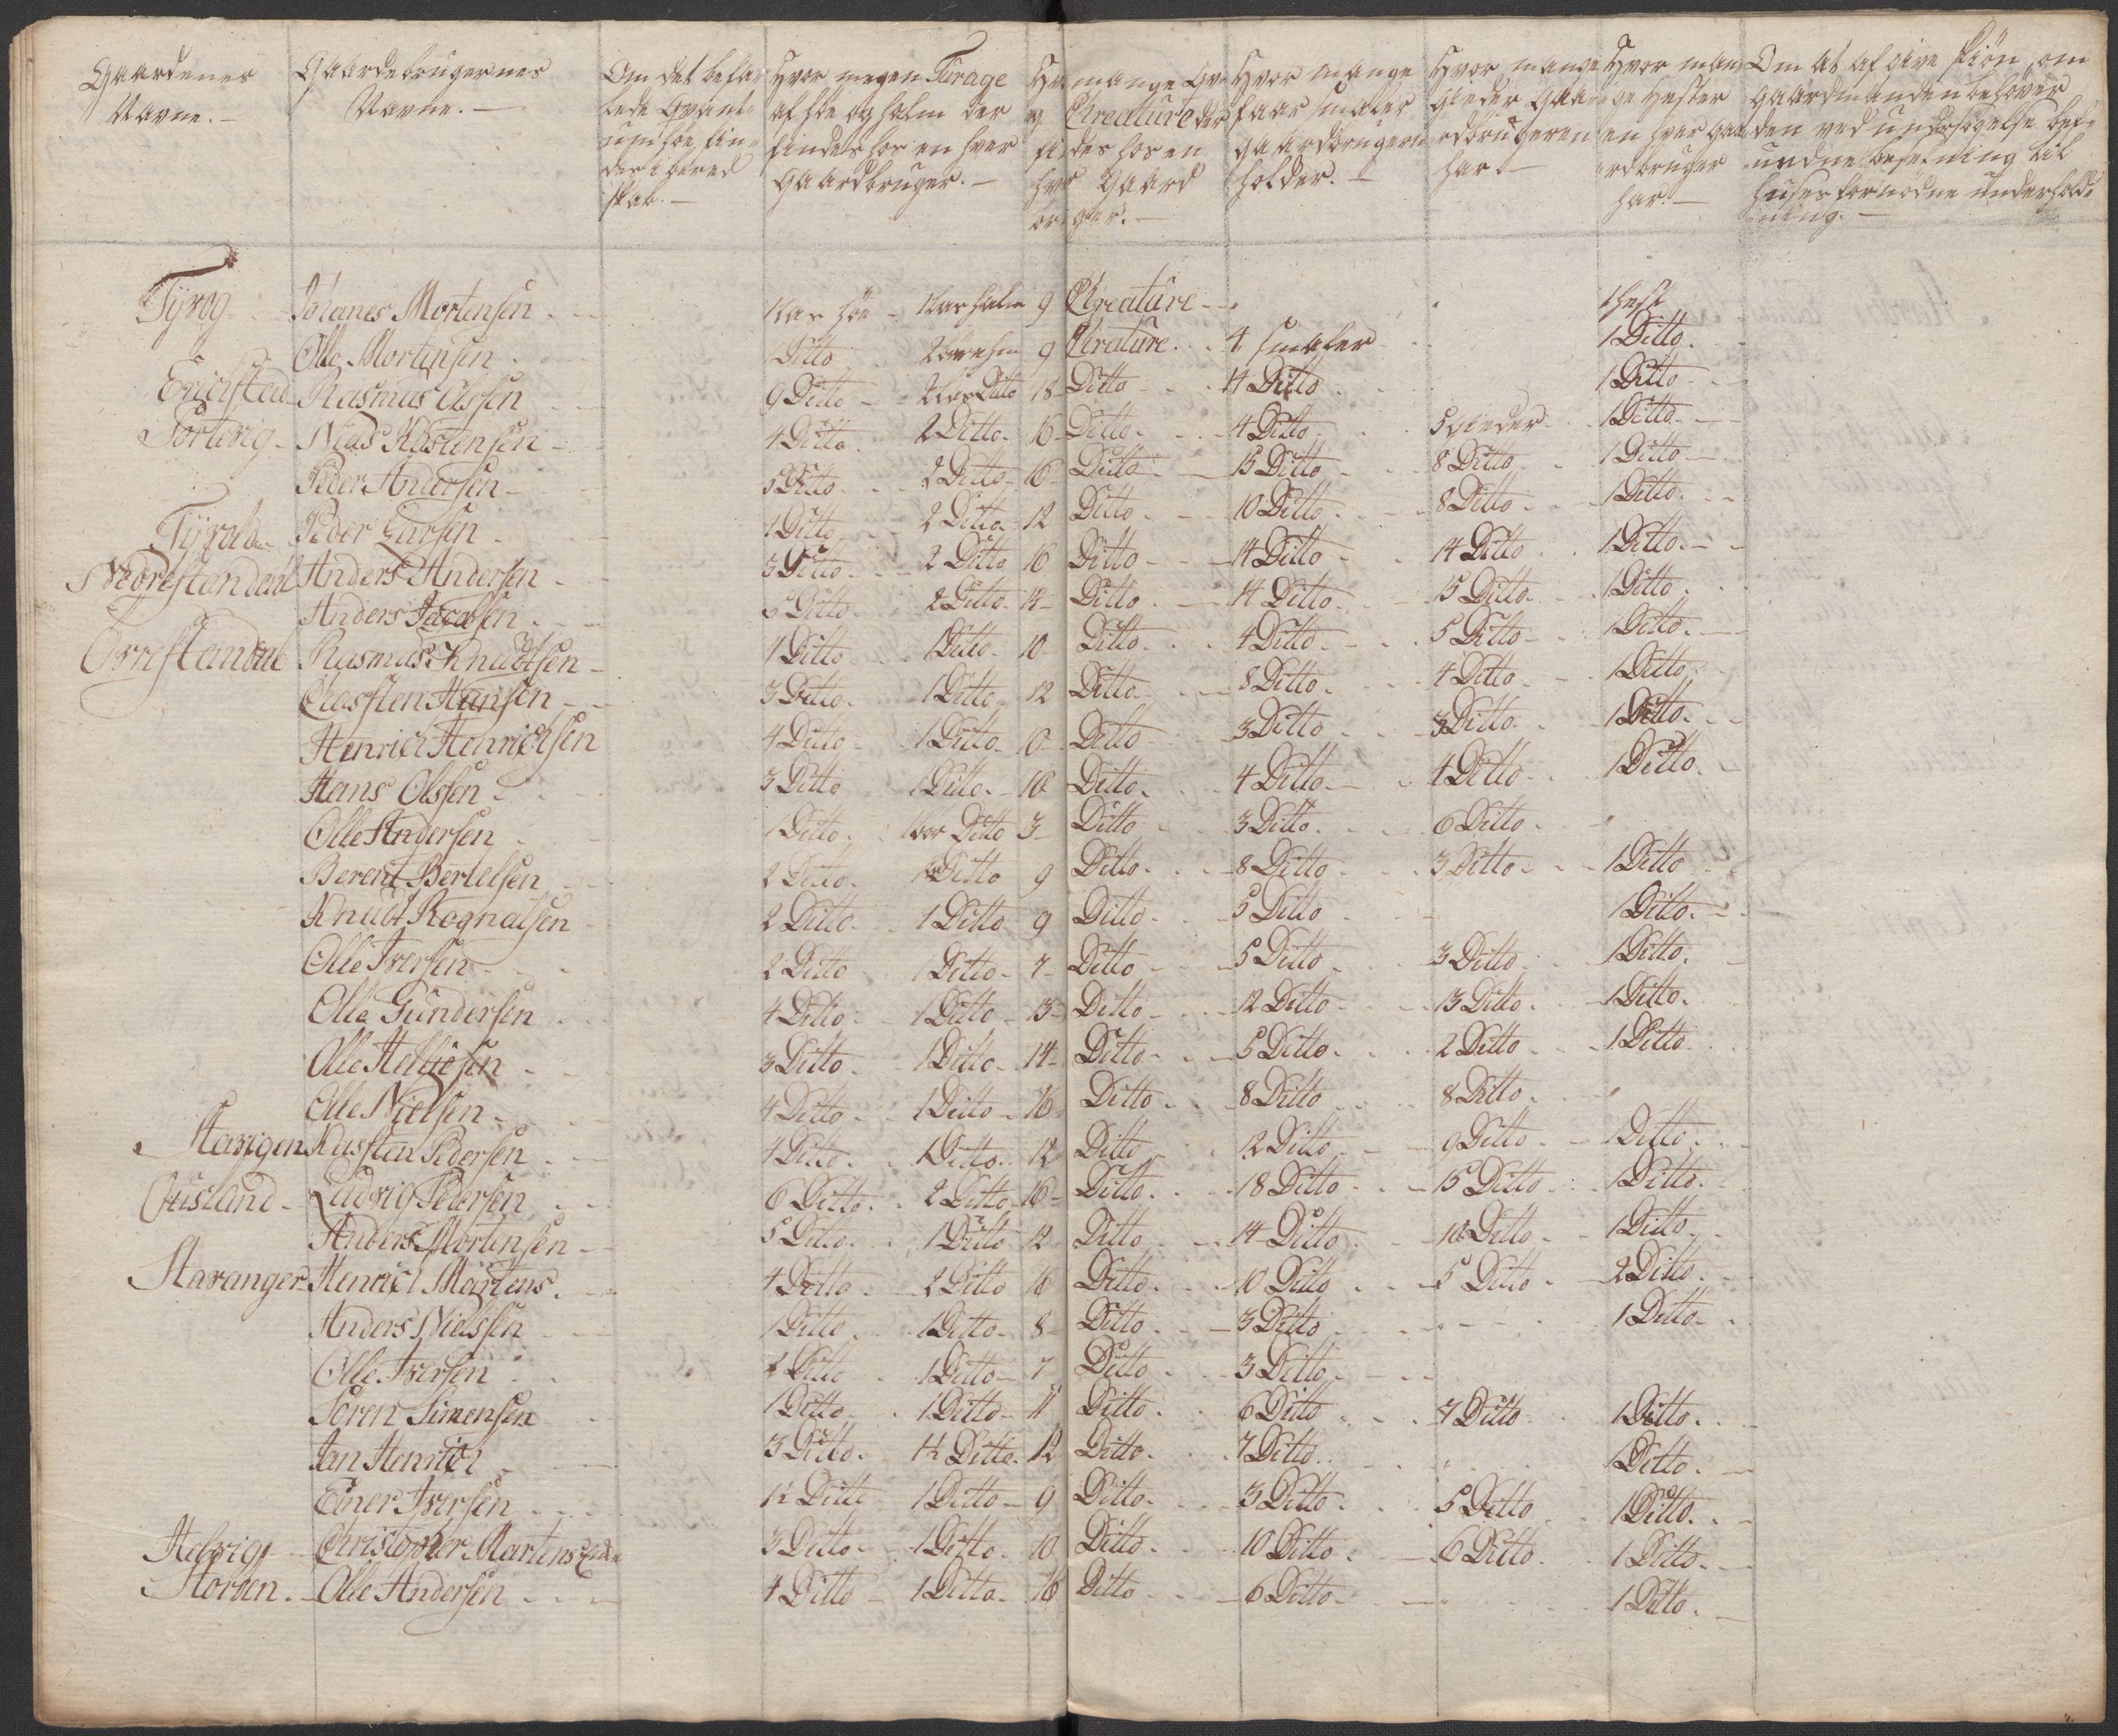 Gaardenes Navne. —
Gaardebrugernes Navne. —
Om det befalede Qvantum höe findes i beredskab. —
Hvor megen Furage af höe og halm der findes hos en hver Gaardbruger. —
Hvor mange Qveg Chreature der findes hos en hver Gaardbruger. —
Hvor mange faar smaler gaardbrugeren holder. —
Hvor mange gieder gaardbrugeren har —
Hvor mange hester en hver gaardbruger har. —
Om at af give skiön, om gaardmanden behöver den ved undersögelse befundne besetning til huses fornödne underholdning. —
Tyvog - Johanes Mortensen - 1 Las höe - 1 Las halm 9 Chreature - 1 hest
Olle Mortensen - 1 Ditto 9 Chreature - 4 smaler 1 Ditto
Erichstad Rasmus Olssen - 9 Ditto - 2 Las Ditto 18 Ditto - 14 Ditto 1 Ditto
Nias Karstensen - 4 Ditto 2 Ditto - 16 Ditto - 4 Ditto 5 gieder 1 Ditto
Peder Andersen - 5 Ditto - 2 Ditto - 16 Ditto - 15 Ditto 8 Ditto 1 Ditto
Peder Larsen - 1 Ditto - 2 Ditto 12 Ditto - 10 Ditto 8 Ditto 1 Ditto
Nedrestandahl Anders Andersen - 3 Ditto - 2 Ditto 16 Ditto - 14 Ditto 14 Ditto 1 Ditto
Anders Jacobsen - 5 Ditto 2 Ditto - 14 Ditto - 14 Ditto 15 Ditto 1 Ditto
Övrestandal Rasmus Knudtsen - 4 Ditto 1 Ditto - 10 Ditto - 4 Ditto 5 Ditto 1 Ditto
Chassten Hansen - 3 Ditto - 1 Ditto - 12 Ditto - 8 Ditto 4 Ditto 1 Ditto
Henrich Henrichsen 4 Ditto - 1 Ditto - 10 Ditto 3 Ditto - 3 Ditto 1 Ditto
Hans Olssen - 3 Ditto 1 Ditto - 10 Ditto - 4 Ditto 4 Ditto 1 Ditto
Olle Andersen - 1 Ditto - Ditto 3 Ditto - 3 Ditto 6 Ditto
Berent Bertelsen 2 Ditto - 1 Ditto 9 Ditto - 8 Ditto 3 Ditto 1 Ditto
Knudt Rognalsen - 2 Ditto - 1 Ditto 9 Ditto - 5 Ditto 1 Ditto
Olle Iversen - 2 Ditto 1 Ditto - 7 Ditto - 5 Ditto 3 Ditto 1 Ditto
Olle Gundersen - 4 Ditto - 1 Ditto - 13 Ditto - 12 Ditto 13 Ditto 1 Ditto
Olle Helliesen - 3 Ditto - 1 Ditto - 14 Ditto - 5 Ditto 2 Ditto 1 Ditto
Olle Nielsen - 4 Ditto - 1 Ditto - 16 Ditto - 8 Ditto 8 Ditto
Kassten Pedersen - 4 Ditto - 1 Ditto - 12 Ditto - 12 Ditto 9 Ditto 1 Ditto
Ousland - Ludvig Pedersen - 6 Ditto - 2 Ditto - 16 Ditto - 18 Ditto 15 Ditto 1 Ditto
Anders Mortensen - 5 Ditto - 1 Ditto 12 Ditto - 14 Ditto 10 Ditto 1 Ditto
Havanger Henrich Martens - 4 Ditto - 2 Ditto 16 Ditto - 10 Ditto 5 Ditto 2 Ditto
Anders Nielssen - 1 Ditto - 1 Ditto - 8 Ditto - 3 Ditto 1 Ditto
Olle Iversen - 2 Ditto - 1 Ditto - 7 Ditto - 3 Ditto
Sören Simensen - 1 Ditto - 1 Ditto - 11 Ditto - 6 Ditto 7 Ditto 1 Ditto
Jan Henrich - 3 Ditto - 1½ Ditto - 12 Ditto - 7 Ditto 1 Ditto
Einer Iversen - 1½ Ditto 1 Ditto - 9 Ditto - 3 Ditto 5 Ditto 1 Ditto
Helvig - Christopher Martens Enke 3 Ditto - 1 Ditto - 10 Ditto - 10 Ditto 6 Ditto 1 Ditto
Olle Andersen - 4 Ditto - 1 Ditto - 16 Ditto - 6 Ditto 1 Ditto